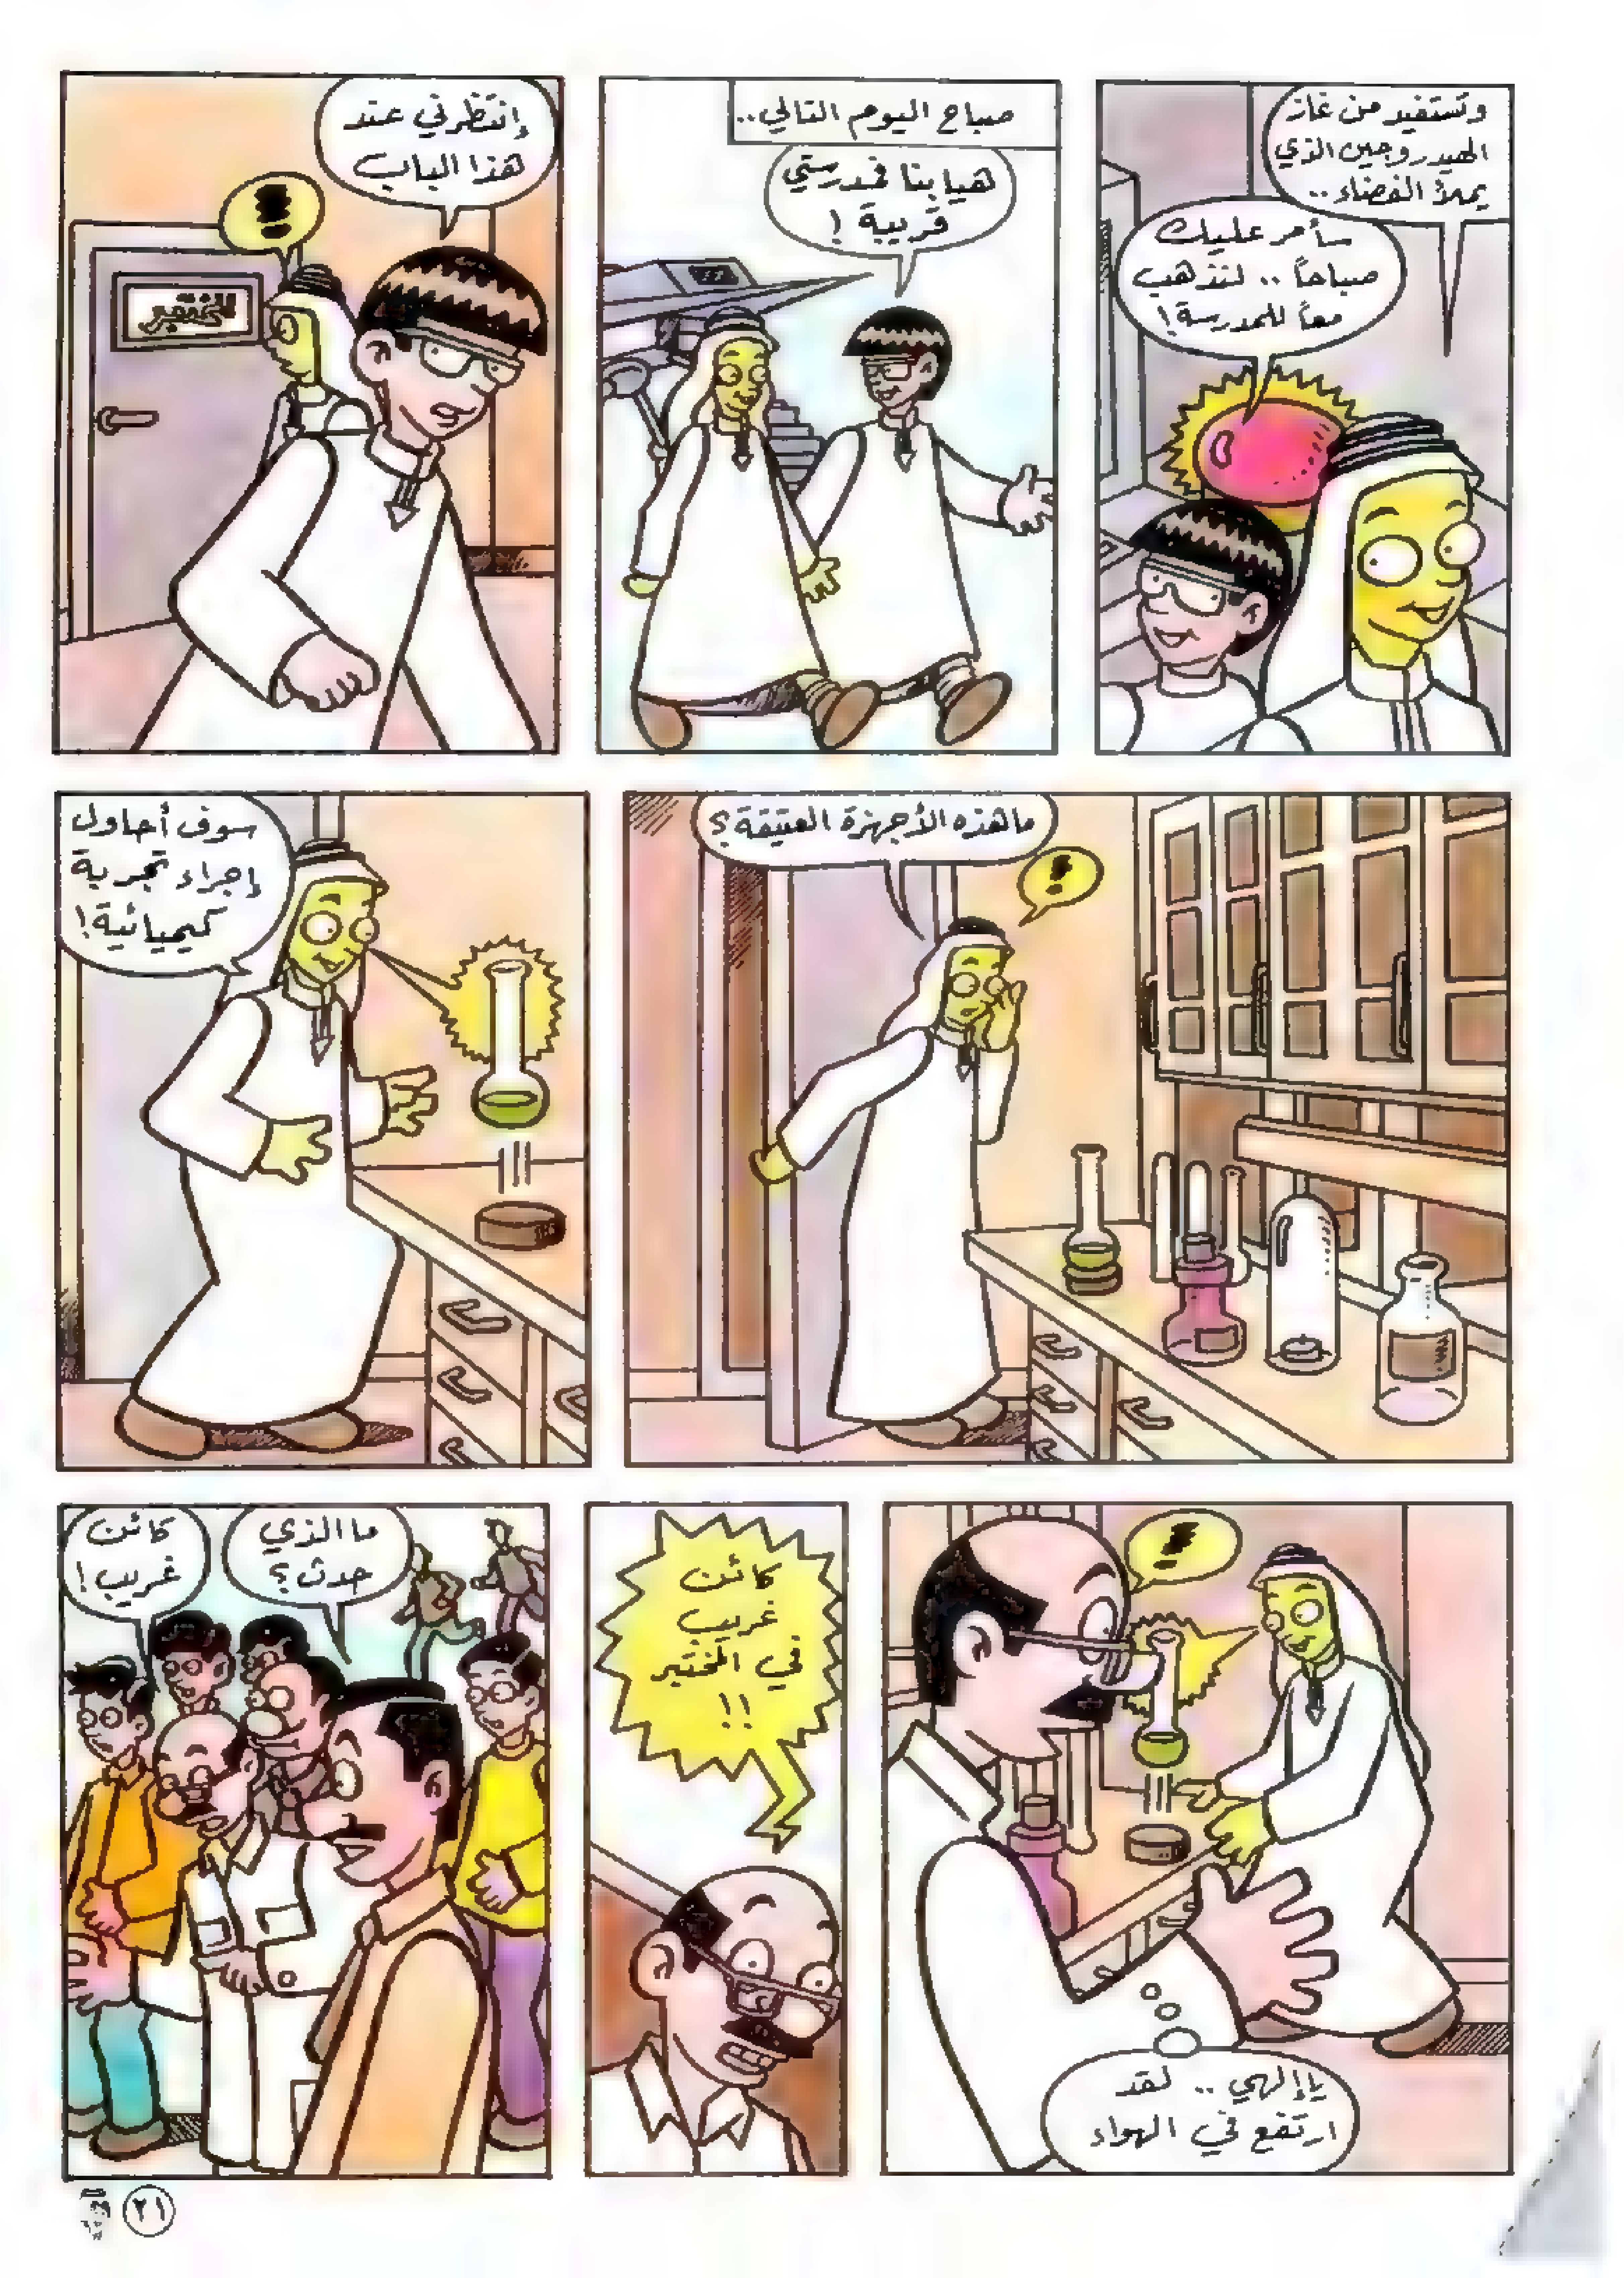 وتستفيد من غاز
الهيدروجين الذي
يملأ الفضاء..
سأمر عليك
صباحاً .. لنذهب
معاً للمدرسة!
صباح اليوم التالي..
هيا بنا فمدرستي
قريبة !
إنتظرني عند
هذا الباب
!
المختبر
ما هذه الأجهزة العتيقة؟
!
سوف أحاول
إجراء تجربة
كيميائية!
!
يا إلهي .. لقد
ارتفع في الهواء
كائن
غريب
في المختبر
!!
ما الذي
حدث؟
كائن
غريب!
٢١